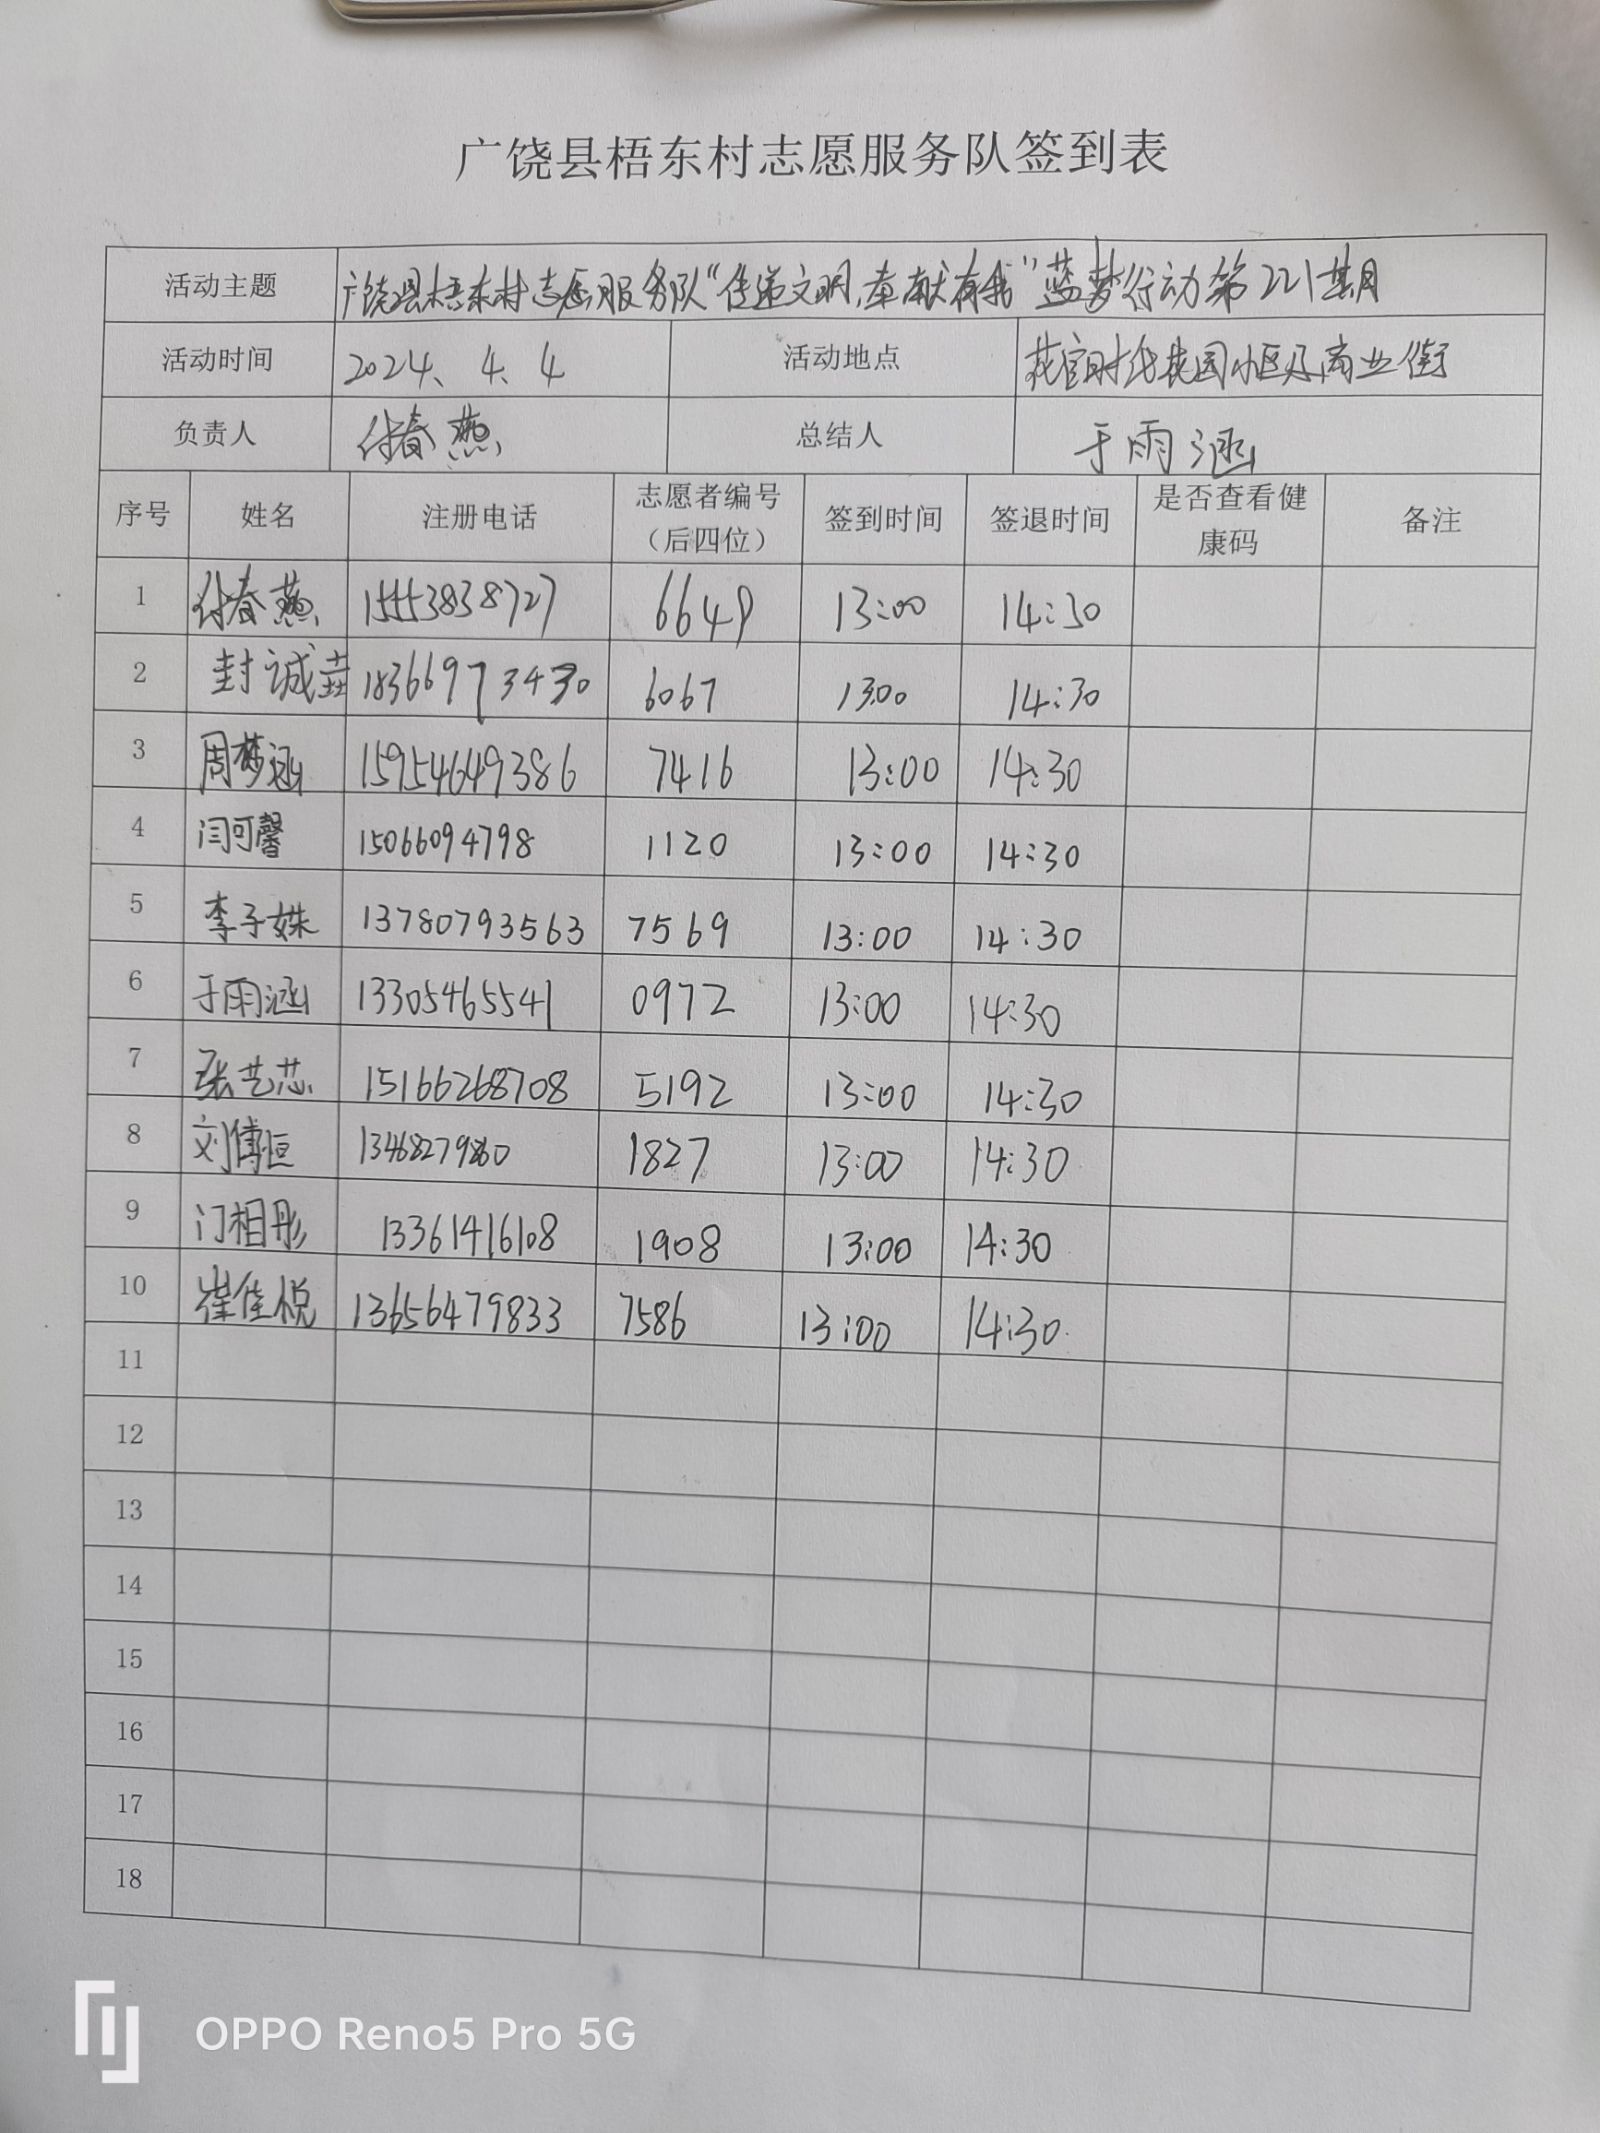 广饶县梧东村志愿服务队签到表
活动主题 广饶县梧东村志愿服务队“传递文明,奉献有我”蓝梦行动第221期
活动时间 2024、4、4 活动地点 花官时代花园小区及商业街
负责人 付春燕 总结人 于雨涵
序号 姓名 注册电话 志愿者编号（后四位） 签到时间 签退时间 是否查看健康码 备注
1 付春燕 15553838727 6649 13:00 14:30
2 封诚 18366973430 6067 13:00 14:30
3 周梦涵 15954649386 7416 13:00 14:30
4 闫可馨 15066094798 1120 13:00 14:30
5 李子姝 13780793563 7569 13:00 14:30
6 于雨涵 13305465541 0972 13:00 14:30
7 张艺芯 15166268708 5192 13:00 14:30
8 刘傅恒 13468279860 1827 13:00 14:30
9 门相彤 13361416108 1908 13:00 14:30
10 崔佳悦 13656479833 7586 13:00 14:30
11
12
13
14
15
16
17
18
OPPO Reno5 Pro 5G